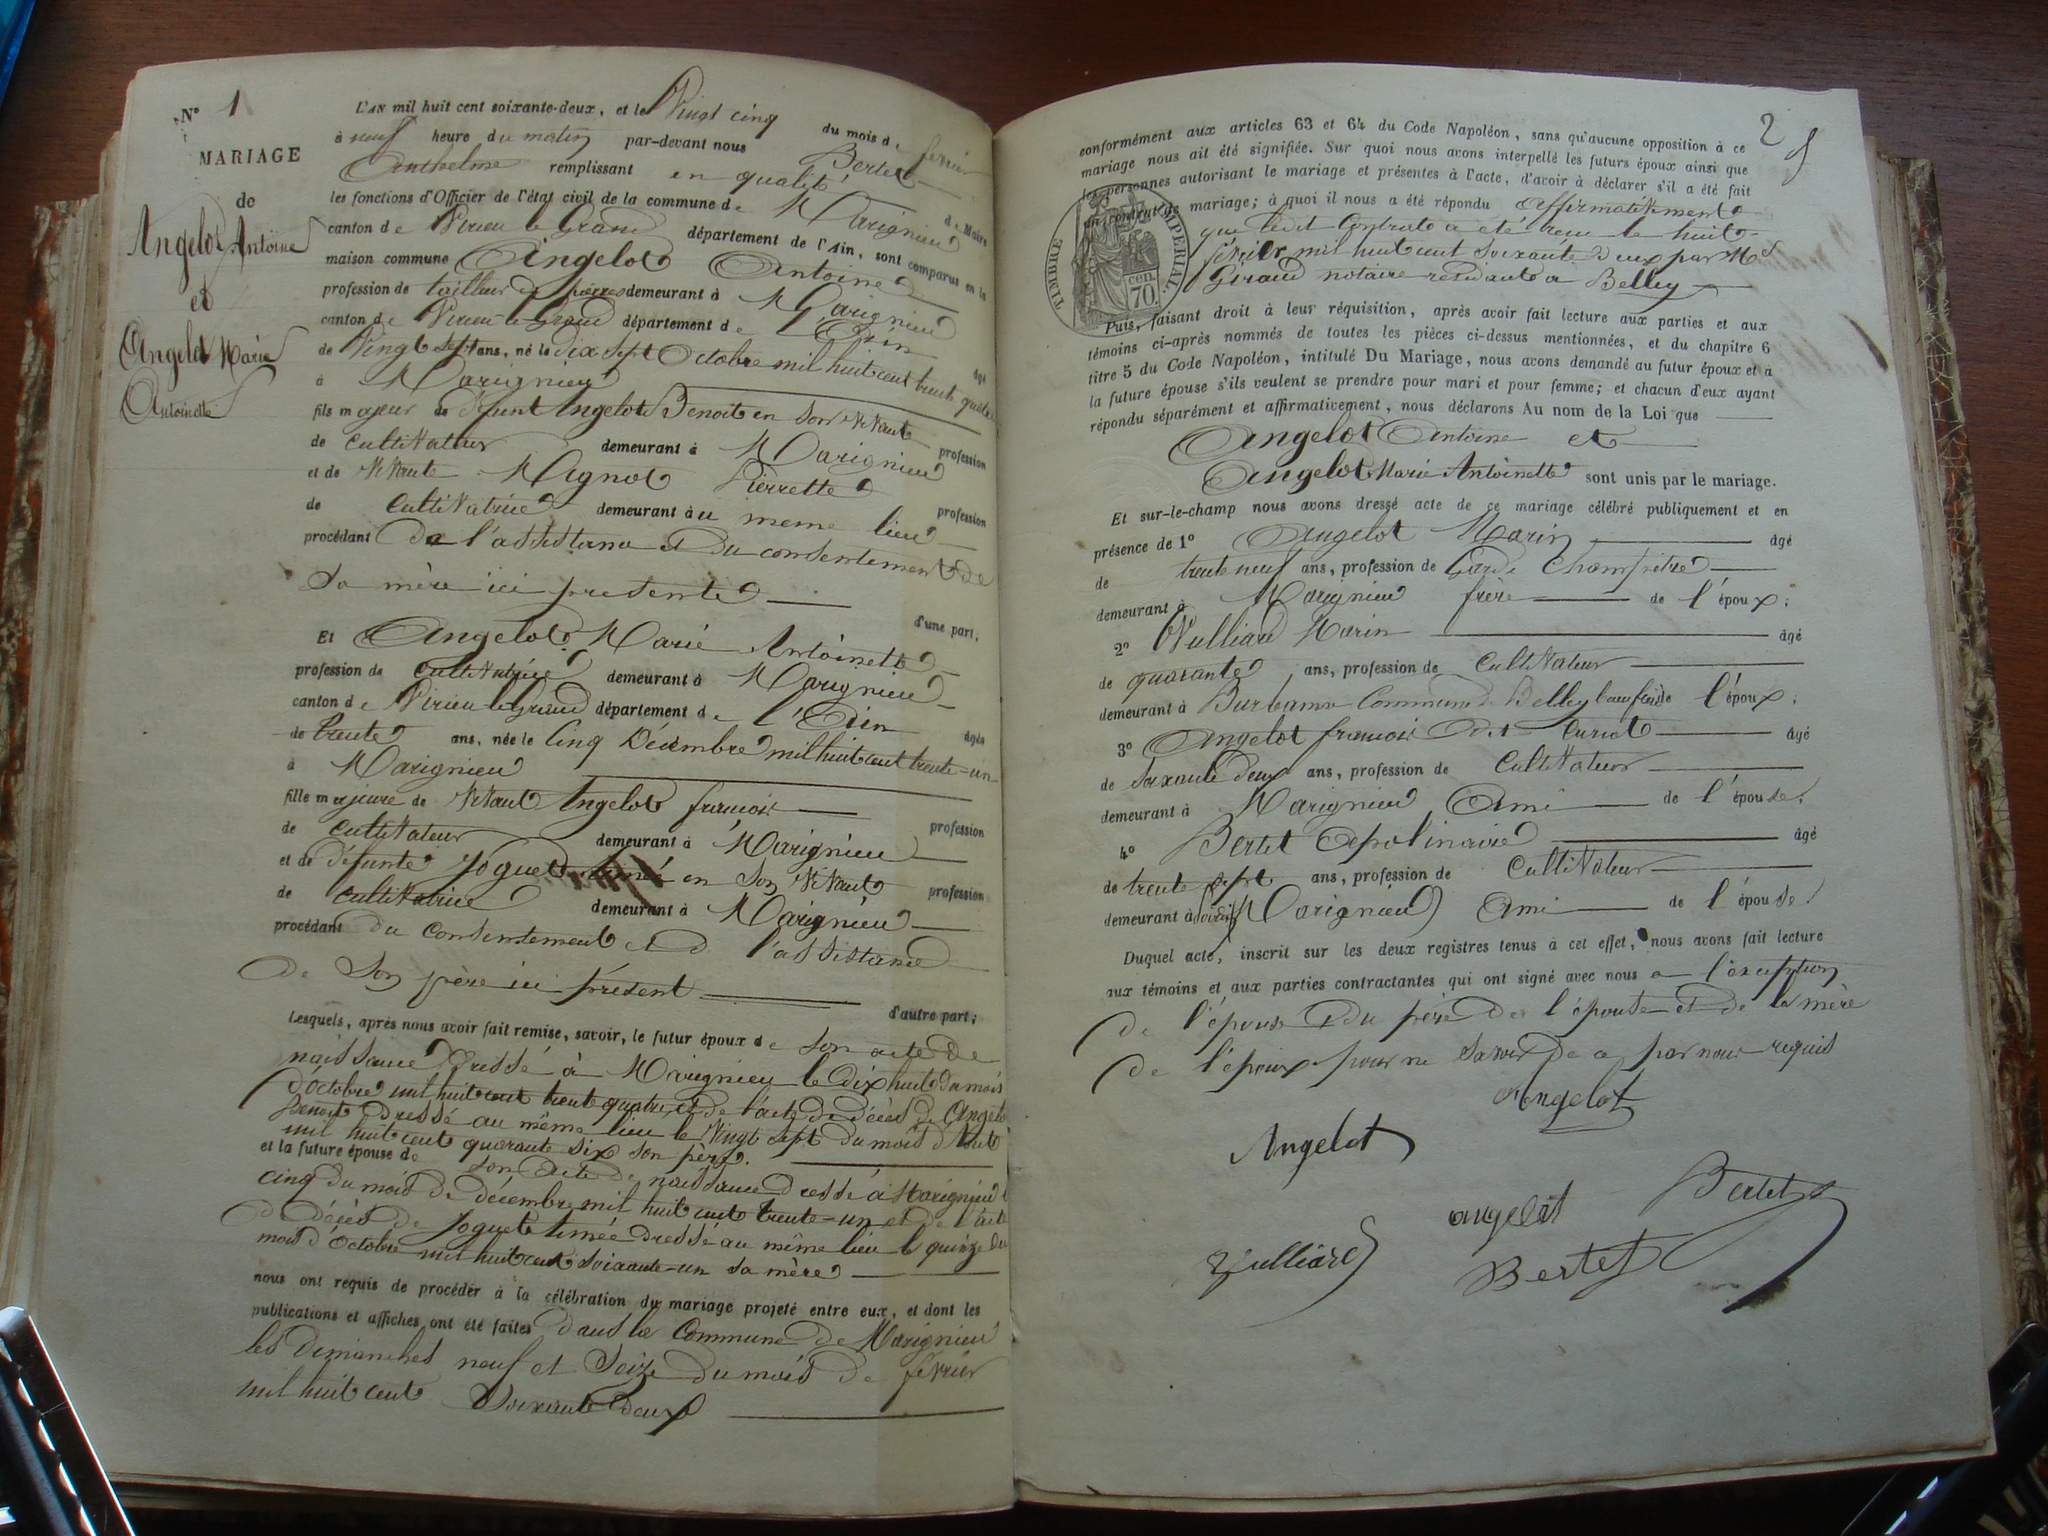 N° 1
MARIAGE
de
Angelot Antoine
et
Angelot Marie
Antoinette
L'AN mil huit cent soixante-deux, et le Vingt cinq du mois de fevrier
à neuf heure du matin par-devant nous Bertet
Anthelme remplissant en qualité de Maire
les fonctions d'Officier de l'état civil de la commune de Marignieu
canton de Virieu le Grand département de l'Ain, sont comparus en la
maison commune Angelot Antoine
profession de tailleur de pierres demeurant à Marignieu
canton de Virieu le Grand département de l'Ain âgé
de Vingt sept ans, né le dix sept Octobre mil huit cent trente quatre
à Marignieu
fils majeur de défunt Angelot Benoit en son vivant profession
de cultivateur demeurant à Marignieu
et de vivante Mognot Pierrette profession
de cultivatrice demeurant au meme lieu
procédant de l'assistance et du consentement de
sa mère ici presente
d'une part,
Et Angelot Marie Antoinette
profession de cultivatrice demeurant à Marignieu
canton de Virieu le Grand département de l'Ain âgée
de trente ans, née le cinq Décembre mil huit cent trente-un
à Marignieu
fille majeure de vivant Angelot francois profession
de cultivateur demeurant à Marignieu
et de défunte Joguet en son vivant profession
de cultivatrice demeurant à Marignieu
procédant du consentement et de l'assistance
de son père ici présent
d'autre part;
Lesquels, après nous avoir fait remise, savoir, le futur époux de son acte de
naissance dressé à Marignieu le dix huit du mois
d'octobre mil huit cent trente quatre, et de l'acte de décès de Angelot
Benoit dressé au même lieu le vingt sept du mois d'Aout
mil huit cent quarante six son père.
et la future épouse de son acte de naissance dressé à Marignieu le
cinq du mois de décembre mil huit cent trente-un et de l'acte
de décès de Joguet Aimée dressé au même lieu le quinze du
mois d'Octobre mil huit cent soixante-un sa mère
nous ont requis de procéder à la célébration du mariage projeté entre eux, et dont les
publications et affiches ont été faites dans la Commune de Marignieu
les dimanches neuf et Seize du mois de fevrier
mil huit cent Soixante deux
2
conformément aux articles 63 et 64 du Code Napoléon, sans qu'aucune opposition à ce
mariage nous ait été signifiée. Sur quoi nous avons interpellé les futurs époux ainsi que
les personnes autorisant le mariage et présentes à l'acte, d'avoir à déclarer s'il a été fait
un contrat de mariage; à quoi il nous a été répondu affirmativement
que ledit contrat a été recu le huit
février mil huit cent soixante deux par Me
Giraud notaire residant a Belley
TIMBRE IMPERIAL
70 cen.
Puis, faisant droit à leur réquisition, après avoir fait lecture aux parties et aux
témoins ci-après nommés de toutes les pièces ci-dessus mentionnées, et du chapitre 6
titre 5 du Code Napoléon, intitulé Du Mariage, nous avons demandé au futur époux et à
la future épouse s'ils veulent se prendre pour mari et pour femme; et chacun d'eux ayant
répondu séparément et affirmativement, nous déclarons Au nom de la Loi que
Angelot Antoine et
Angelot Marie Antoinette sont unis par le mariage.
Et sur-le-champ nous avons dressé acte de ce mariage célébré publiquement et en
présence de 1° Angelot Marin âgé
de trente neuf ans, profession de Garde Champêtre
demeurant à Marignieu frère de l'époux;
2° Vulliard Marin âgé
de quarante ans, profession de cultivateur
demeurant à Burbanne Commune de Belley beau frère de l'époux;
3° Angelot francois dit Curiat âgé
de soixante deux ans, profession de cultivateur
demeurant à Marignieu Ami de l'épouse;
4° Bertet Apolinaire âgé
de trente sept ans, profession de cultivateur
demeurant à Marignieu Ami de l'épouse;
Duquel acte, inscrit sur les deux registres tenus à cet effet, nous avons fait lecture
aux témoins et aux parties contractantes qui ont signé avec nous a l'exception
de l'épouse et du père de l'épouse et de la mère
de l'époux pour ne savoir de ce par nous requis
Angelot
Angelot
angelot Bertet
Vulliard Bertet